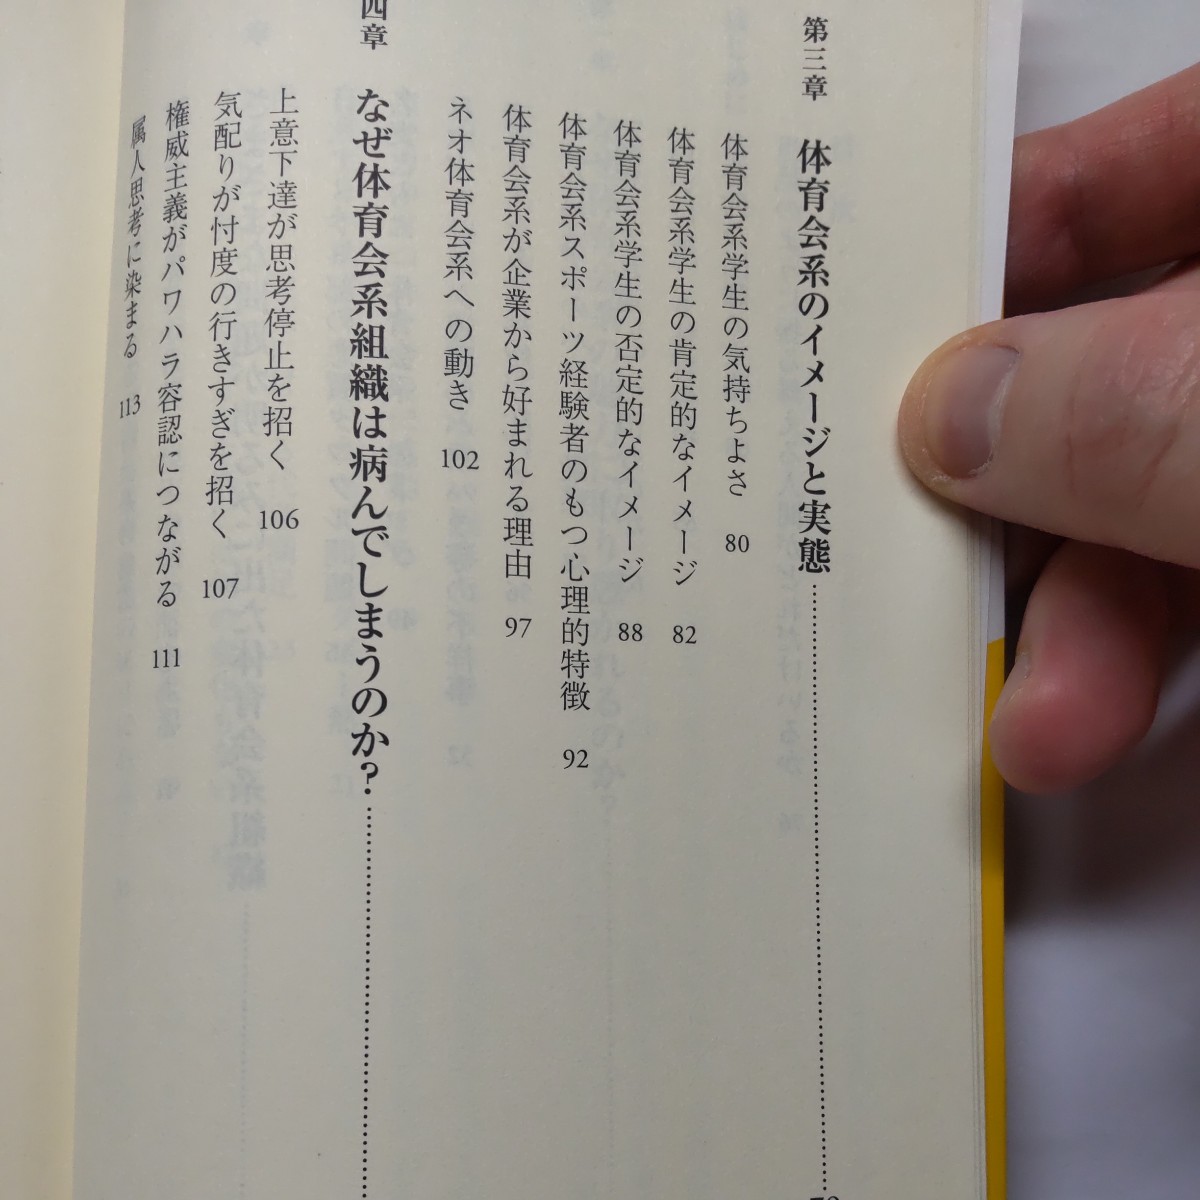 第三章 体育会系のイメージと実態
体育会系学生の気持ちよさ 80
体育会系学生の肯定的なイメージ 82
体育会系学生の否定的なイメージ 88
体育会系スポーツ経験者のもつ心理的特徴 92
体育会系が企業から好まれる理由 97
ネオ体育会系への動き 102
四章 なぜ体育会系組織は病んでしまうのか?
上意下達が思考停止を招く 106
気配りが忖度の行きすぎを招く 107
権威主義がパワハラ容認につながる 111
属人思考に染まる 113